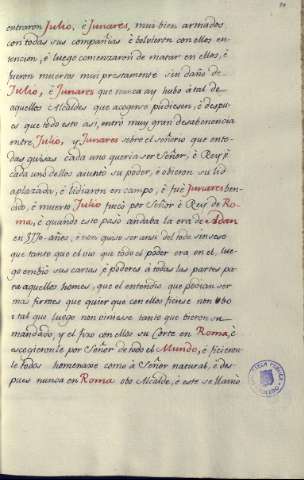 entraron Julio, è Junares, mui bien armados
con todas sus compañias è bolvieron con ellos en
tencion, è luego comenzaron de matar en ellos, è
fueron muertos mui prestamente sin daño de
Julio, è Junares que nunca ay hubo àtal de
aquellos Alcaldes que acogerse pudiesen, è despu
es que todo esto asi, entrò muy gran desabenencia
entre Julio, y Junares sobre el señorio que en to
das guisas cada uno queria ser Señor, è Rey è
cada uno dellos aiuntò su poder, è obieron su lid
aplazada, è lidiaron en campo, è fuè Junares ben
cido, è muerto Julio fincò por Señor è Rey de Ro
ma, è quando esto pasò andaba la era de Adan
en 5170 años, è non quiso ser ansi del todo sin seso
que tanto que el vio que todo el poder era en el, lue
go embiò sus cartas è poderes à todas las partes pa
ra aquellos homes, que el entendiò que podian ser
mas firmes que quier que con ellos fuese non ubo
ital que luego non viniese tanto que vieron su
mandado, y el fizo con ellos su Corte en Roma, è
escogieronle por Señor de todo el Mundo, è ficieron
le todos homenaxe como à Señor natural, è des
pues nunca en Roma obo Alcalde, è este se llamò